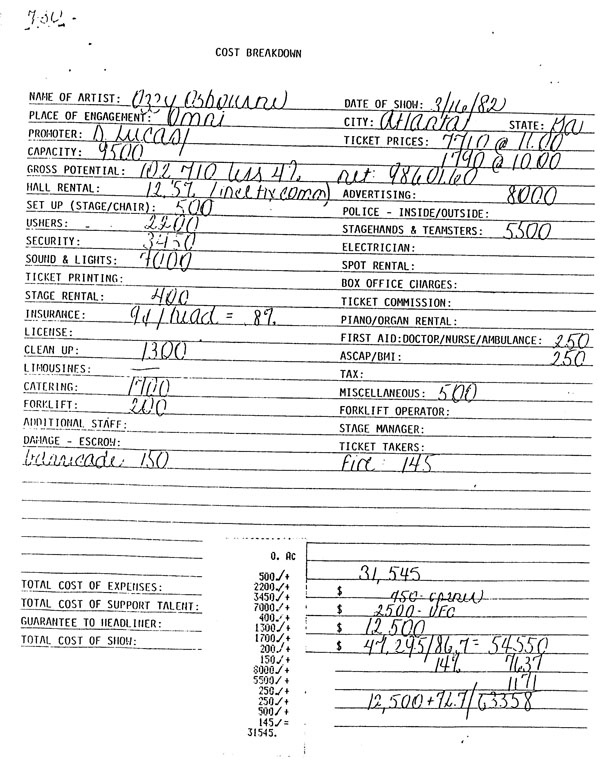 750-
COST BREAKDOWN
NAME OF ARTIST: Ozzy Osbourne DATE OF SHOW: 3/16/82
PLACE OF ENGAGEMENT: Omni CITY: Atlanta STATE: Ga
PROMOTER: A. Lucas TICKET PRICES: 7710 @ 11.00
CAPACITY: 9500 1790 @ 10.00
GROSS POTENTIAL: 102,710 less 4% net: 98,601.60
HALL RENTAL: 12.5% (incl tix comm) ADVERTISING: 8000
SET UP (STAGE/CHAIR): 500 POLICE - INSIDE/OUTSIDE:
USHERS: 2200 STAGEHANDS & TEAMSTERS: 5500
SECURITY: 3450 ELECTRICIAN:
SOUND & LIGHTS: 7000 SPOT RENTAL:
TICKET PRINTING: BOX OFFICE CHARGES:
STAGE RENTAL: 400 TICKET COMMISSION:
INSURANCE: 9¢/head = .8% PIANO/ORGAN RENTAL:
LICENSE: FIRST AID:DOCTOR/NURSE/AMBULANCE: 250
CLEAN UP: 1300 ASCAP/BMI: 250
LIMOUSINES: — TAX:
CATERING: 1700 MISCELLANEOUS: 500
FORKLIFT: 200 FORKLIFT OPERATOR:
ADDITIONAL STAFF: STAGE MANAGER:
DAMAGE - ESCROW: TICKET TAKERS:
barricade: 150 Fire: 145
0. AC
500./+ 31,545
TOTAL COST OF EXPENSES: 2200./+ $ 750- opener
3450./+
TOTAL COST OF SUPPORT TALENT: 7000./+ $ 2500- UFO
400./+
GUARANTEE TO HEADLINER: 1300./+ $ 12,500
1700./+
TOTAL COST OF SHOW: 200./+ $ 47,295/86.7= 54550
150./+ 14% 7637
8000./+
5500./+ 1171
250./+
250./+ 12,500+72.7/63358
500./+
145./=
31545.